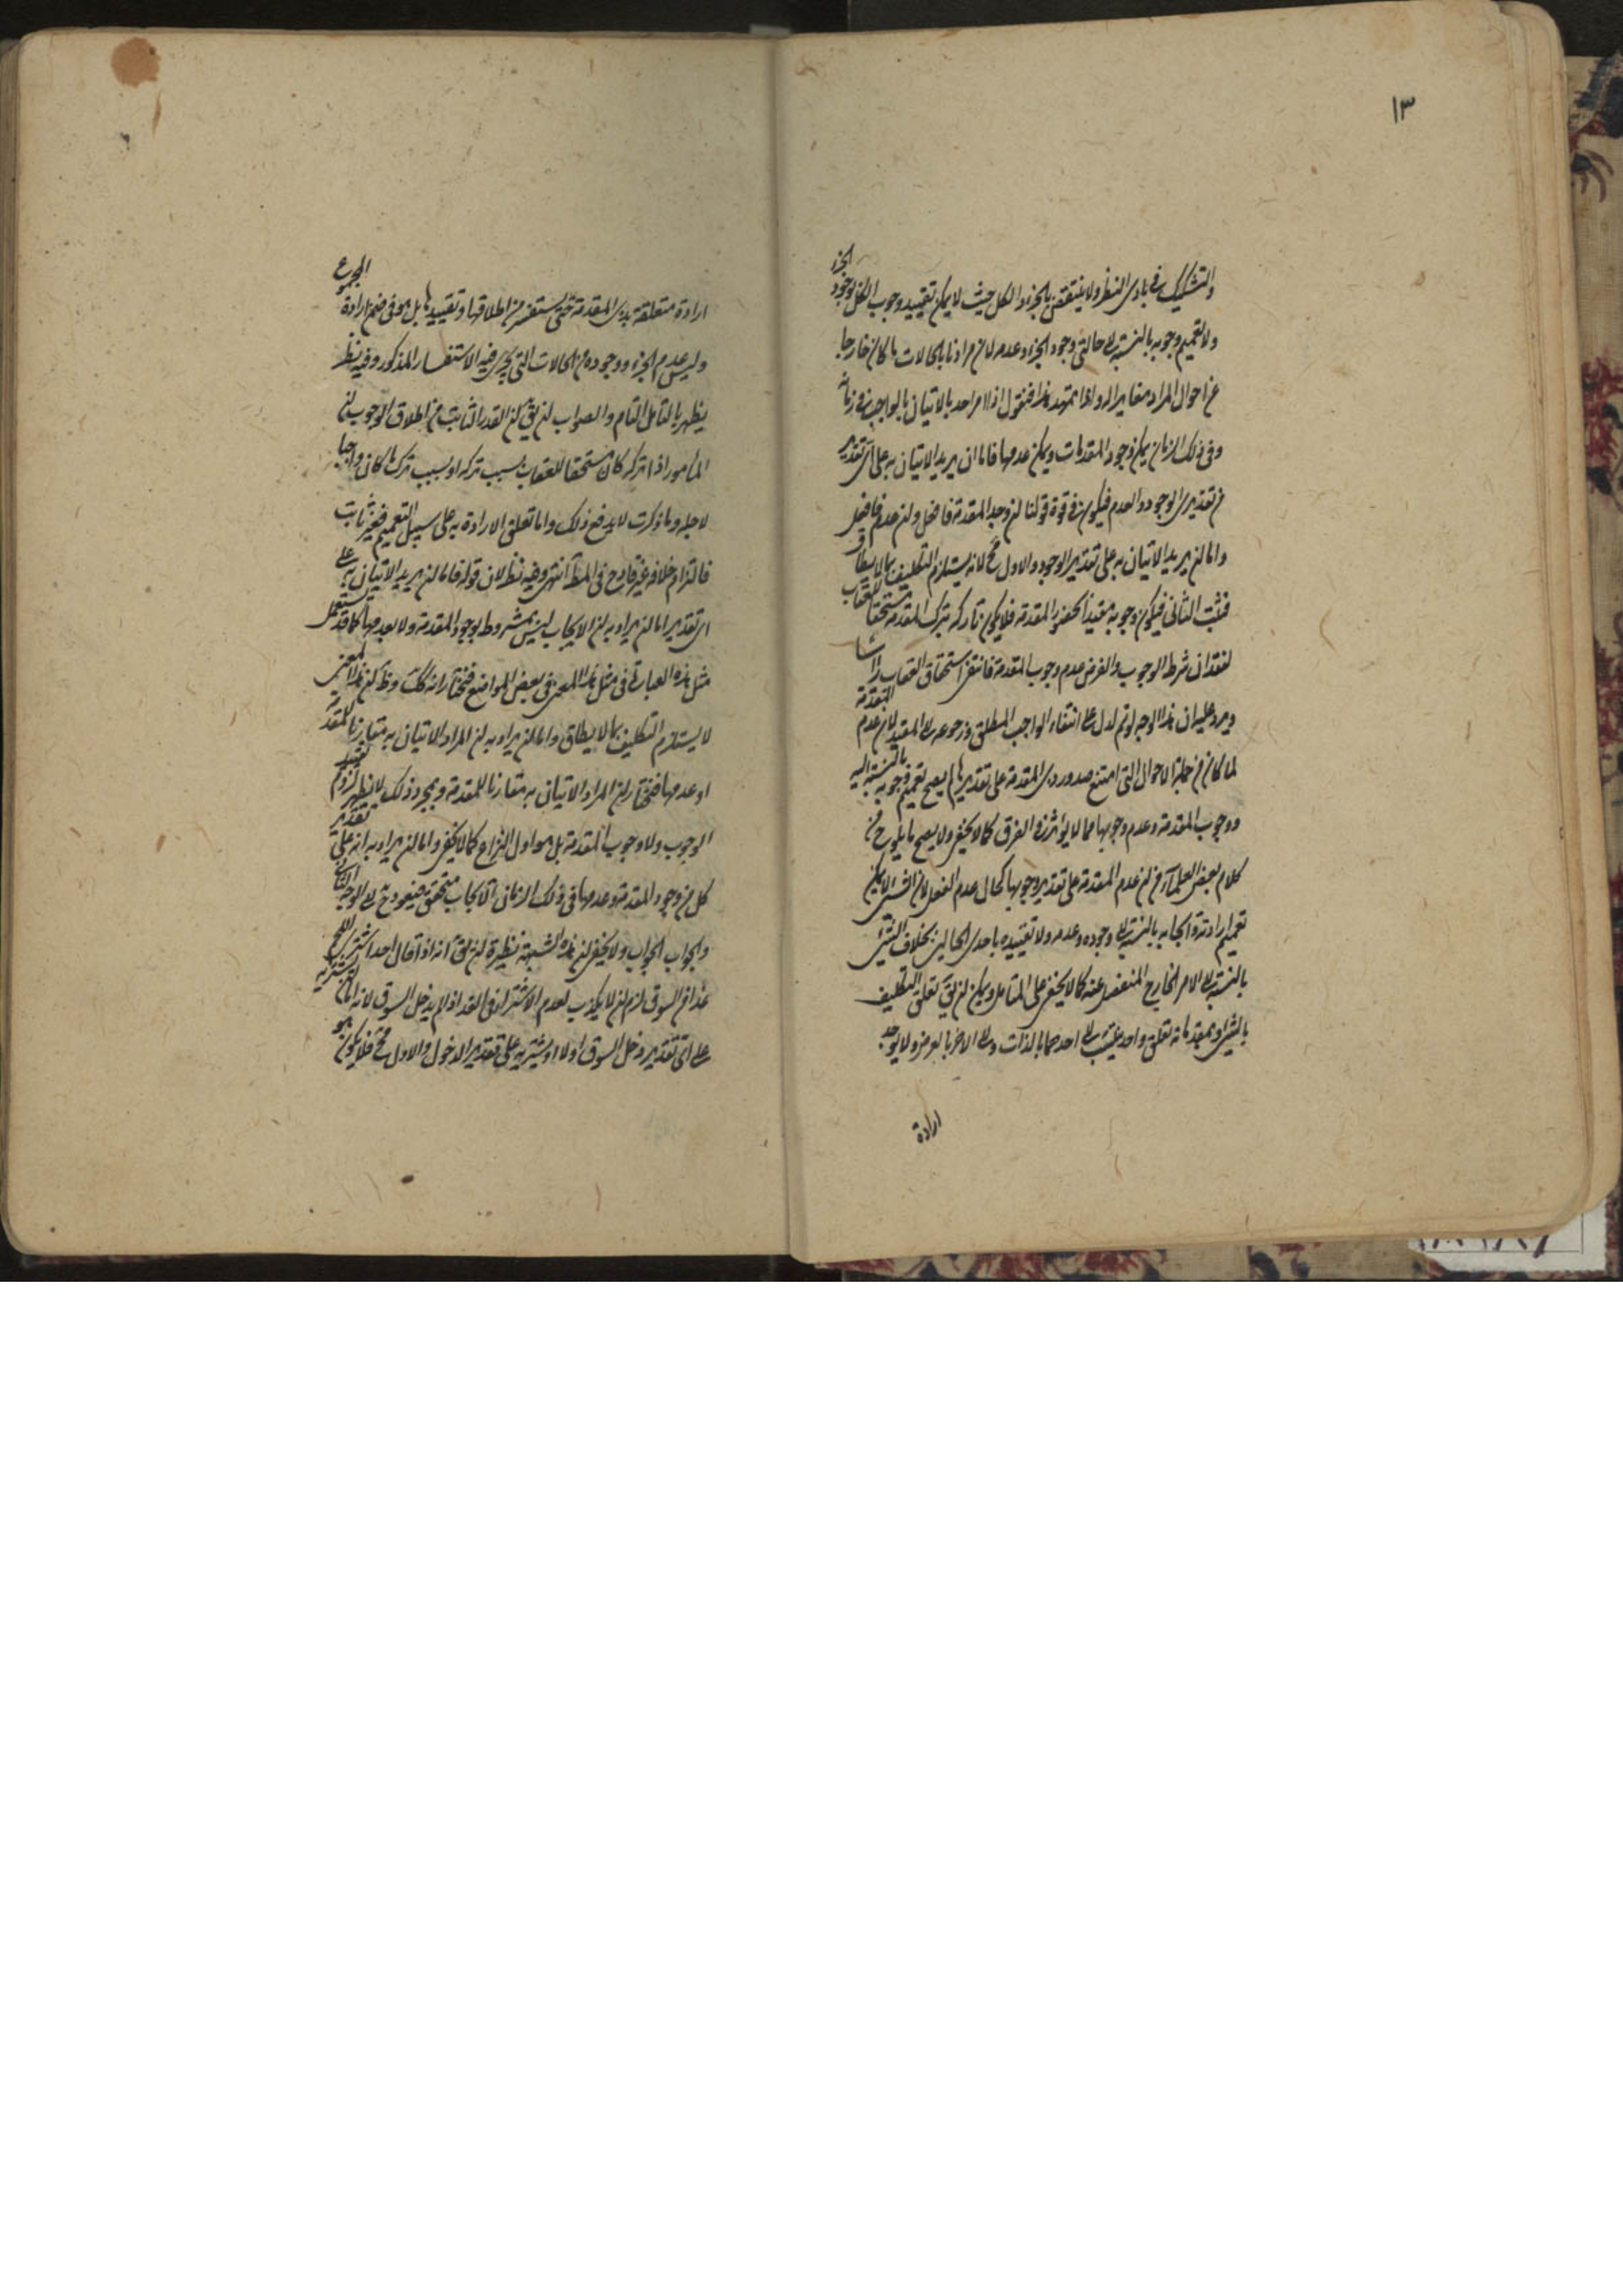 ١٣
والتشكيك في بادي النظر ولا ينتقض بالجزء والكل حيث لا يمكن تقييد وجوب الكل بوجود الجزء
ولا تعميم وجوبه بالنسبة الى حالتي وجود الجزء وعدمه لان مرادنا بالحالات ما كان خارجا
عن احوال المراد مغايرا له واذا تمهد هذا فنقول اذا امر احد بالاتيان بالواجب في زمان
وفي ذلك الزمان يمكن وجود المقدمات ويمكن عدمها فاما ان يريد الاتيان به على اى تقدير
من تقديرى الوجود والعدم فيكون في قوة قولنا ان وجد المقدمة فافعل وان عدم فافعل
واما ان يريد الاتيان به على تقدير الوجود والاول مح لانه يستلزم التكليف بما لا يطاق
فثبت الثاني فيكون وجوبه مقيدا بحضور المقدمة فلا يكون تاركه بترك المقدمة مستحقا للعقاب
لفقدان شرط الوجوب والفرض عدم وجوب المقدمة فانتفى استحقاق العقاب راسا
ويرد عليه ان هذا الوجه لو تم لدل على انتفاء الواجب المطلق ورجوعه الى المقيد لان عدم المقدمة
لما كان من جملة الاحوال التي امتنع صدور ذى المقدمة على تقديرها لم يصح تعميم وجوبه بالنسبة اليه
ووجوب المقدمة وعدم وجوبها مما لا يؤثر في الفرق كما لا يخفى ولا يصح ما يلوح من
كلام بعض العلماء من ان عدم المقدمة على تقدير وجوبها كحال عدم الفعل لان الشئ لا يمكن
تعميم ارادته وايجابه بالنسبة الى وجوده وعدمه ولا تقييده باحدى الحالين بخلاف الشئ
بالنسبة الى الامر الخارج المنفصل عنه كما لا يخفى على المتامل ويمكن ان يق تعلق التكليف
بالشئ وبمقدماته تعلق واحد ينسب الى احدهما بالذات والى الاخر بالعرض ولا يوجد
ارادة
ارادة متعلقة بذى المقدمة حتى يستفسر من اطلاقها وتقييدها بل هو في ضمن ارادة المجموع
وليس عدم الجزء ووجوده من الحالات التي يجرى فيه الاستفسار المذكور وفيه نظر
يظهر بالتامل التام والصواب ان يق ان القدر الثابت من اطلاق الوجوب ان
المأمور اذا تركه كان مستحقا للعقاب بسبب تركه او بسبب ترك ما كان واجبا
لاجله وما ذكرت لا يدفع ذلك واما تعلق الارادة به على سبيل التعميم فغير ثابت
فالتزام خلافه غير قادح في المط انتهى وفيه نظر لان قوله فاما ان يريد الاتيان به على
اى تقدير اما ان يراد به ان الايجاب ليس بمشروط بوجود المقدمة ولا بعدمها كما قد يستعمل
مثل هذه العبارة في مثل هذا المعنى في بعض المواضع فنختار انه كك وظ ان هذا المعنى
لا يستلزم التكليف بما لا يطاق واما ان يراد به ان المراد الاتيان به مقارنا للمقدمة
او عدمها فنختار ان المراد الاتيان به مقارنا للمقدمة وبمجرد ذلك لا يظهر لزوم تقييد
الوجوب ولا وجوب المقدمة بل هو اول النزاع كما لا يخفى واما ان يراد به انه على تقدير
كل من وجود المقدمة وعدمها في ذلك الزمان الايجاب متحقق فيعود ح الى الوجه الثاني
والجواب الجواب ولا يخفى ان هذه الشبهة نظيرة ان يق انه اذا قال احد اشترى اللحم
غدا من السوق لزم ان لا يكذب لعدم الاشتراء في الغد اذا لم يدخل السوق لانه اما يشتريه
على اى تقدير دخل السوق اولا او يشتريه على تقدير الدخول والاول مح فلا يكون هو